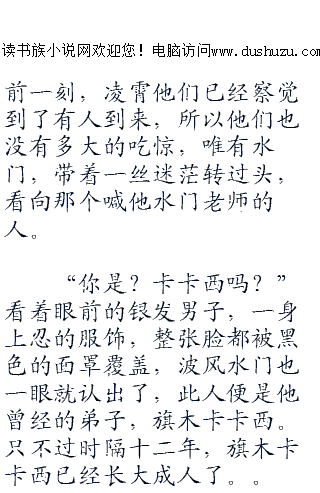 读书族小说网欢迎您！电脑访问www.dushuzu.com
前一刻，凌霄他们已经察觉
到了有人到来，所以他们也
没有多大的吃惊，唯有水
门，带着一丝迷茫转过头，
看向那个喊他水门老师的
人。
“你是？卡卡西吗？”
看着眼前的银发男子，一身
上忍的服饰，整张脸都被黑
色的面罩覆盖，波风水门也
一眼就认出了，此人便是他
曾经的弟子，旗木卡卡西。
只不过时隔十二年，旗木卡
卡西已经长大成人了。。